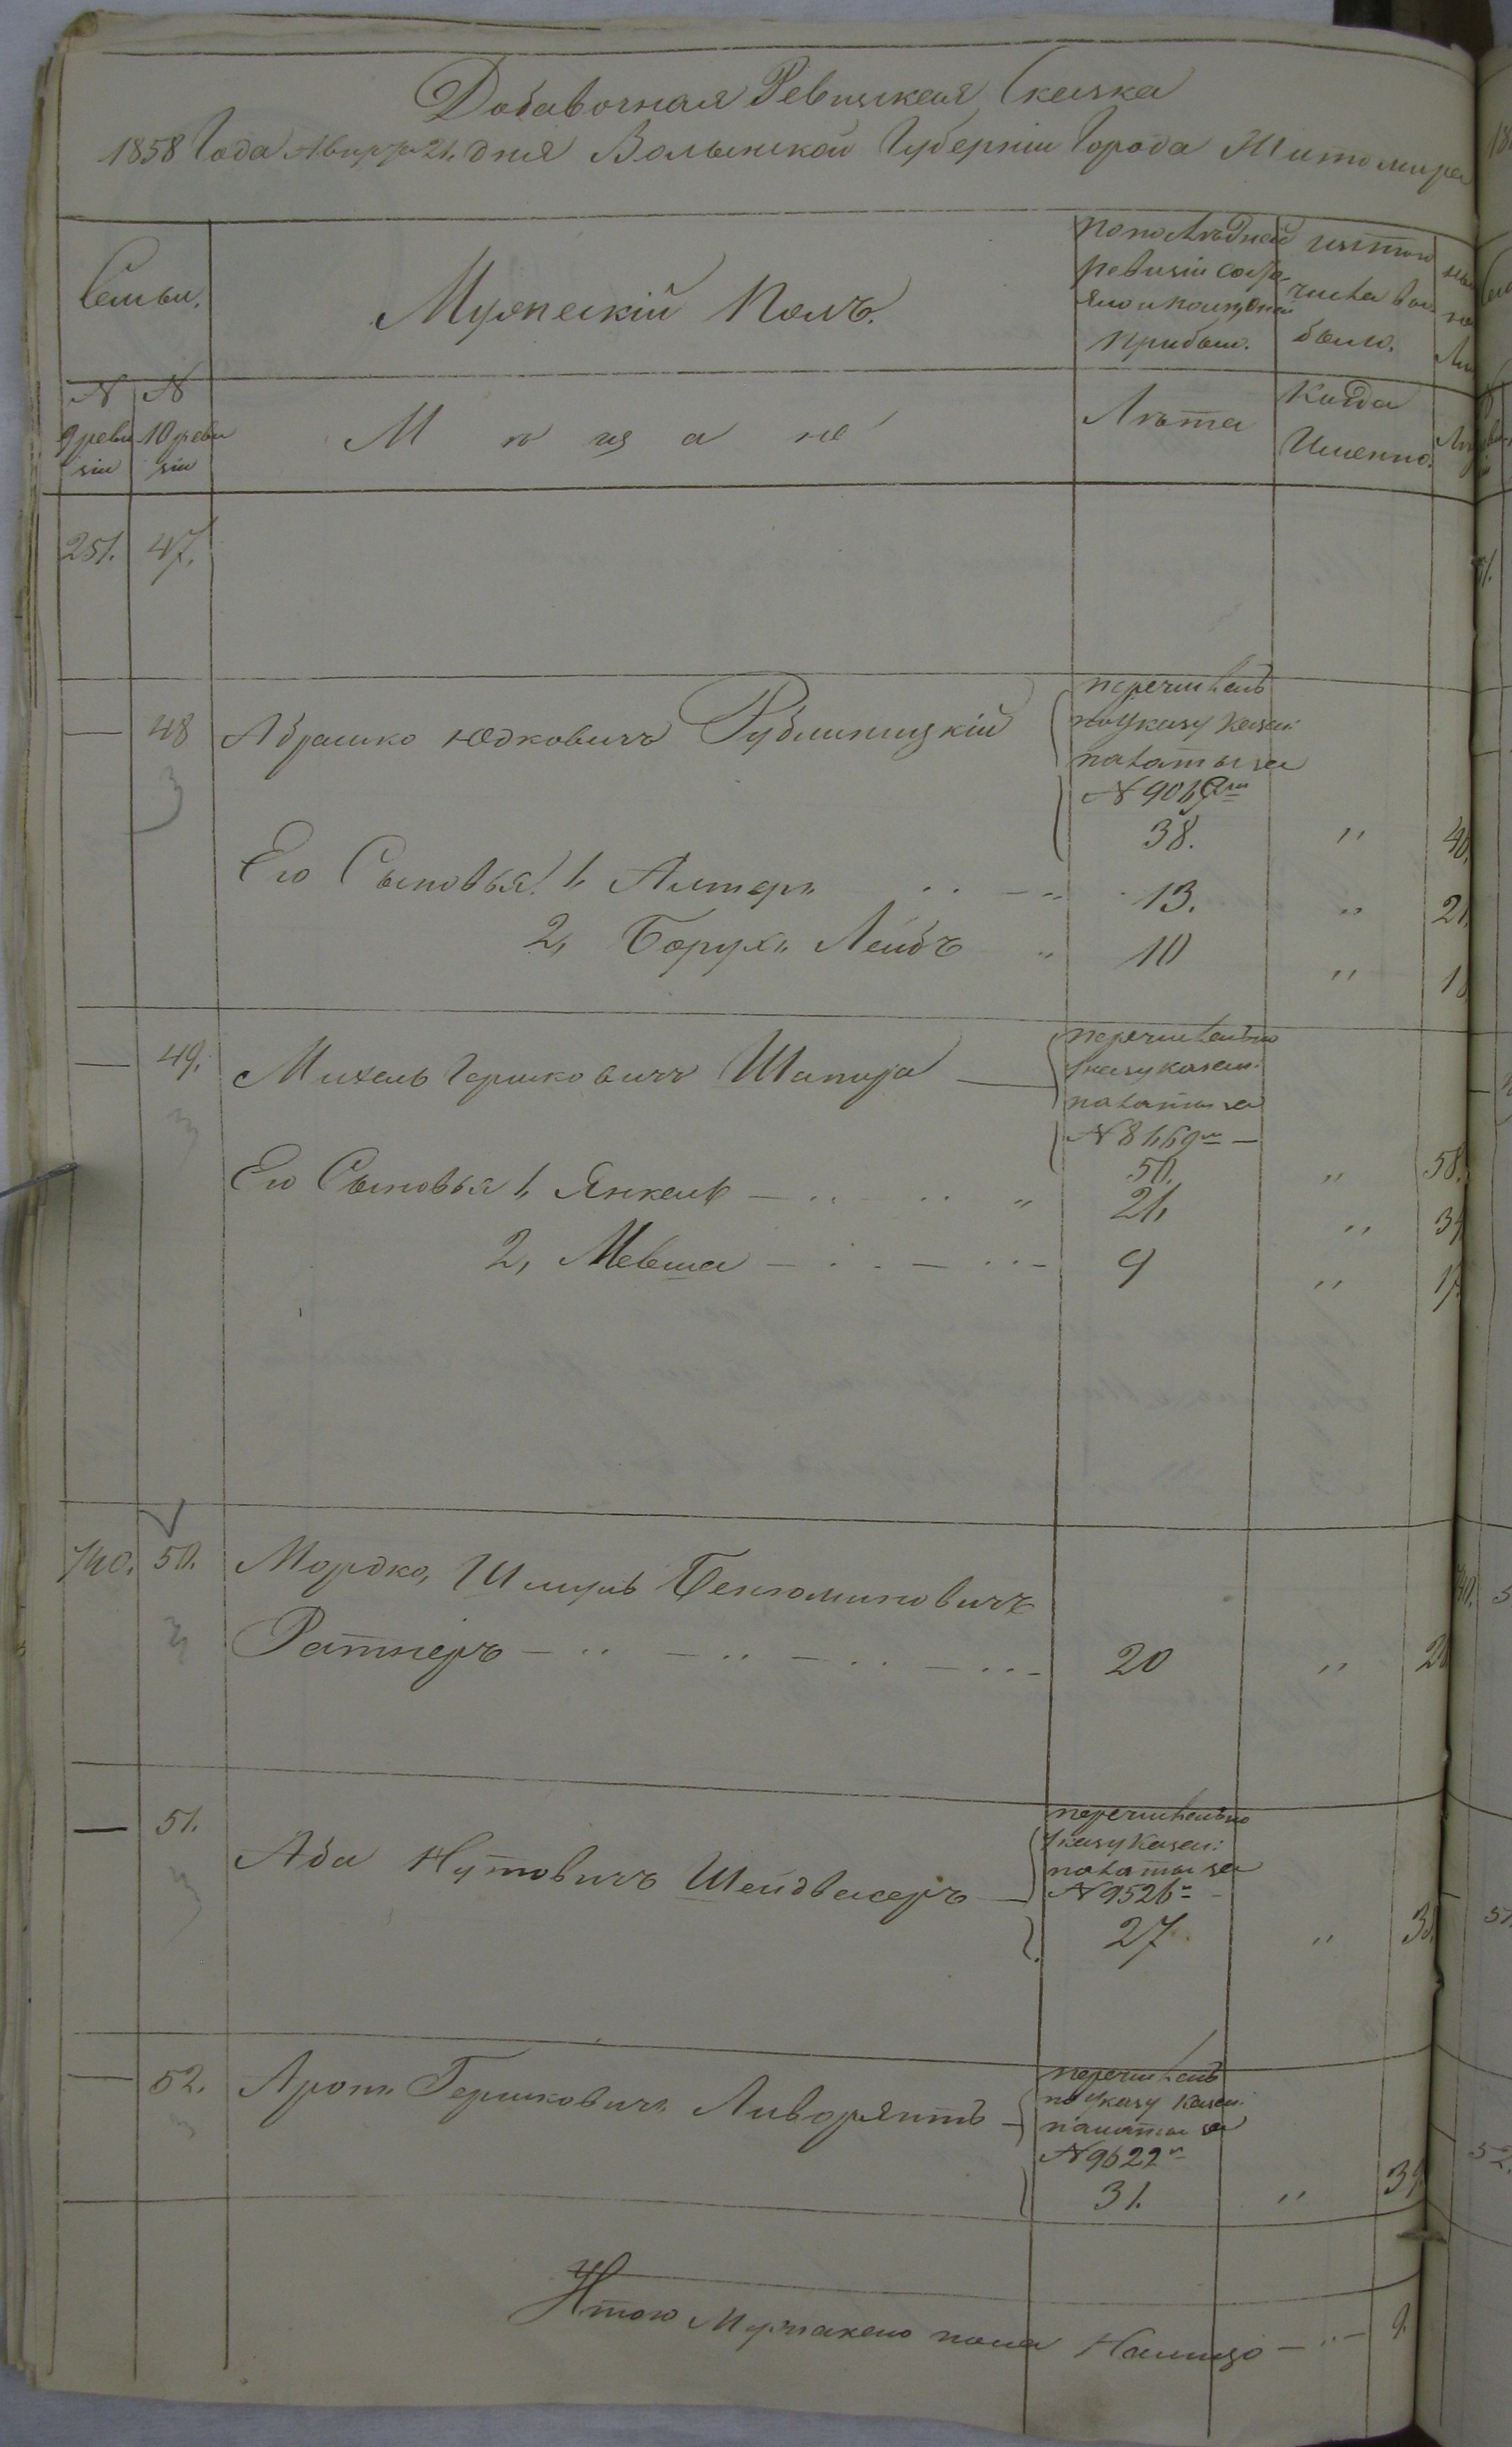 Добавочная Ревизкая Сказка
1858 Года 21. дня Волынской Губерніи Города Житомира
Семьи.
Мужескій Полъ.
По последней
ревизіи состо-
яло и после оной
прибыло.
изтого
числа вы
было.
N N
9 реви 10 реви
зіи зіи
М ѣ щ а не
Лѣта
Когда
Именно.
251. 47.
— 48 Абрашко Юдковичъ Рублиницкій
перечислѣнъ
по Указу Казен:
палаты за
N
38. " 40.
Его Сыновья: 1, Алтеръ 13. " 21.
2, Борухъ Лейбъ " 10 " 18
— 49. Михель Гершковичъ Шапира
перечислѣнъ по
Указу казен:
палаты за
N 8669
50. " 58.
Его Сыновья 1, Янкель " 21, "
2, Мевша 9 " 17.
740. 50. Мордко, Шмуль Бенюминовичъ
Ратнеръ 20 " 28
— 51.
Аба Нутовичъ Шейдвасеръ
перечислѣнъ по
Указу Казен:
палаты за
N 9526
27 "
— 52. Аронъ Гершковичъ Ливорянтъ
перечислѣнъ
по Указу Казен:
палаты за
N 9622
31. " 39
Итого Мужакего пола Налицо 9.